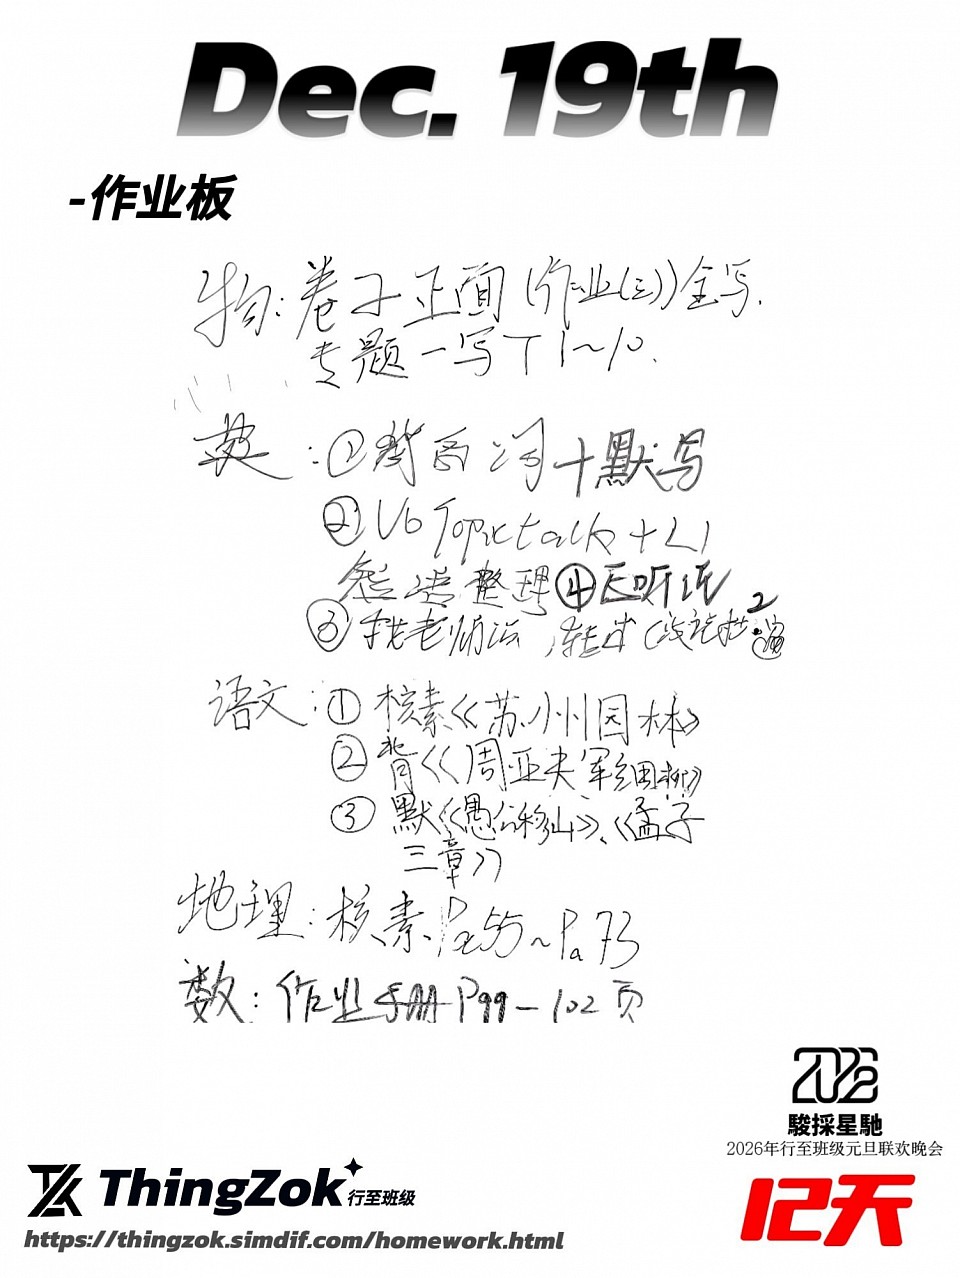 Dec. 19th
-作业板
物:卷子正面(作业(三))全写.
专题一写T1~10.
英:①背百词+默写
②U6 Topic talk + L1
整理④E听说
③找老师 2
语文:①核素《苏州园林》
②背《周亚夫军细柳》
③默《愚公移山》、《孟子
三章》
地理:核素 P 55~Pa 73
数:作业手册P99-102页
2026
駿採星馳
2026年行至班级元旦联欢晚会
ThingZok 行至班级
12天
https://thingzok.simdif.com/homework.html